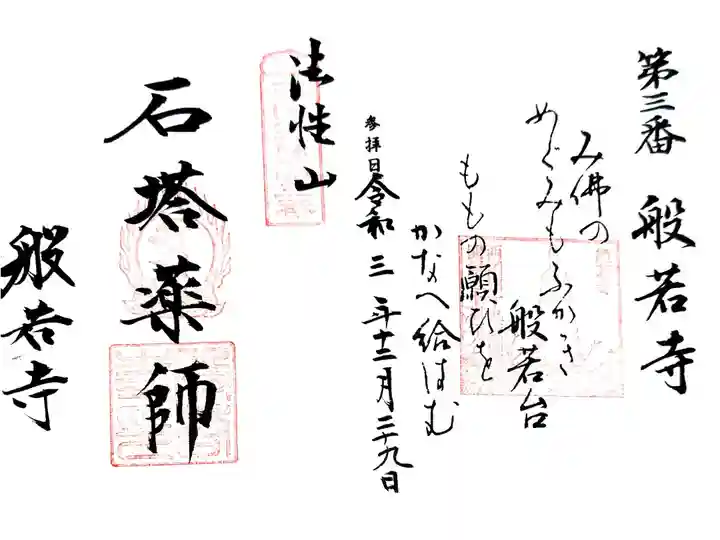 第三番 般若寺
み佛の
めぐみもふかき
般若台
ももの願ひを
かなへ給はむ
参拝日 令和三年十二月二十九日
法性山
石塔薬師
般若寺